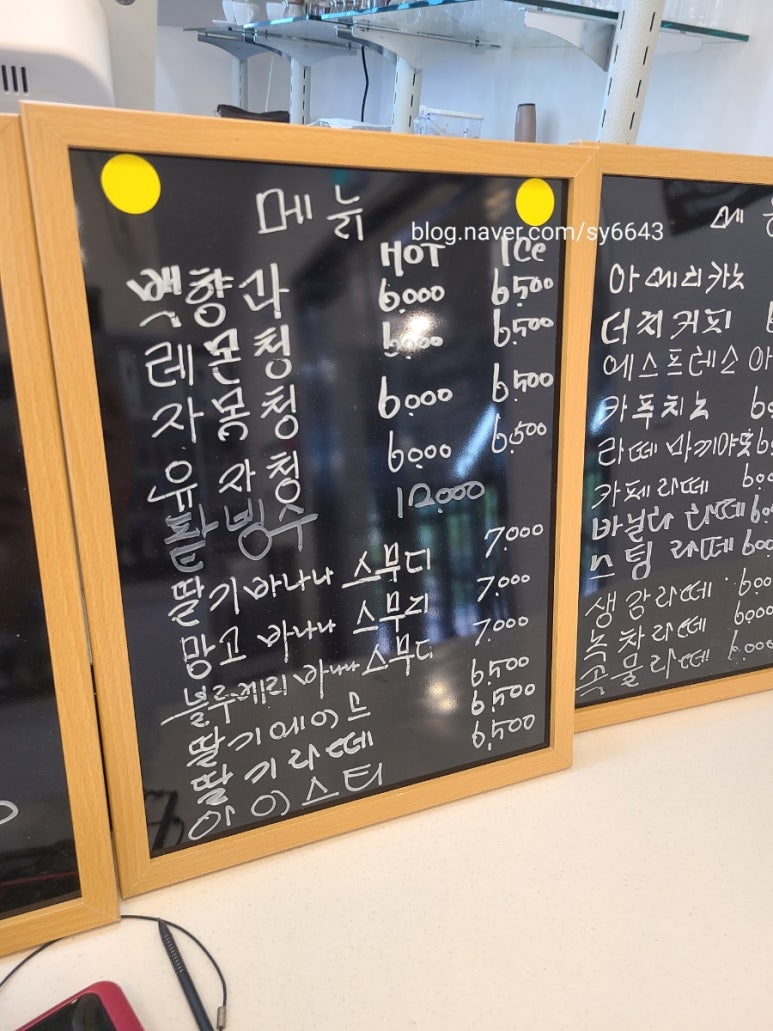 메뉴
blog.naver.com/sy6643
HOT ICe
백향과 6.000 6.500
레몬청 6.000 6.500
자몽청 6.000 6.500
유자청 6.000 6.500
팥빙수 12.000
딸기바나나 스무디 7.000
망고 바나나 스무디 7.000
블루베리 바나나 스무디 7.000
딸기에이드 6.500
딸기라떼 6.500
아이스티 6.500
메
아메리카노
더치커피
에스프레소
카푸치노
라떼 마끼야또
카페라떼
바닐라 라떼
스팅 라떼
생강라떼
녹차라떼
곡물라떼 6.000